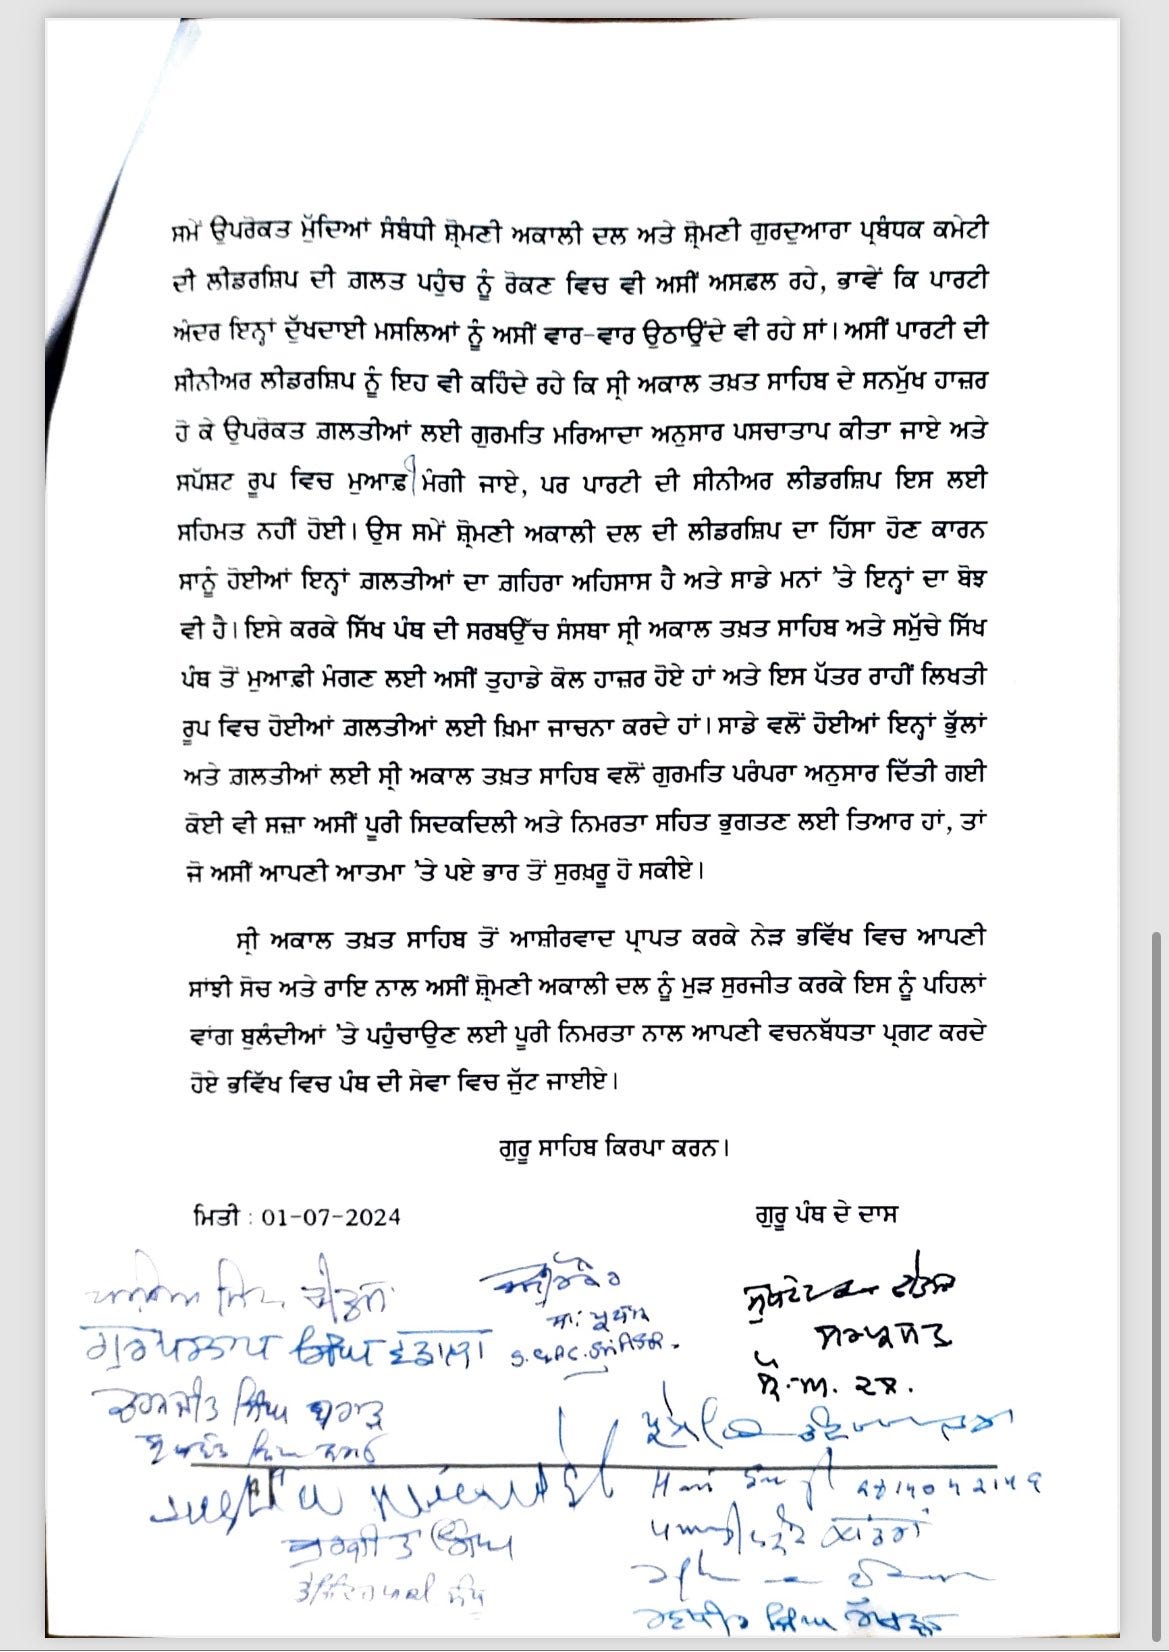 ਸਮੇਂ ਉਪਰੋਕਤ ਮੁੱਦਿਆਂ ਸੰਬੰਧੀ ਸ਼੍ਰੋਮਣੀ ਅਕਾਲੀ ਦਲ ਅਤੇ ਸ਼੍ਰੋਮਣੀ ਗੁਰਦੁਆਰਾ ਪ੍ਰਬੰਧਕ ਕਮੇਟੀ
ਦੀ ਲੀਡਰਸ਼ਿਪ ਦੀ ਗ਼ਲਤ ਪਹੁੰਚ ਨੂੰ ਰੋਕਣ ਵਿਚ ਵੀ ਅਸੀਂ ਅਸਫ਼ਲ ਰਹੇ, ਭਾਵੇਂ ਕਿ ਪਾਰਟੀ
ਅੰਦਰ ਇਨ੍ਹਾਂ ਦੁੱਖਦਾਈ ਮਸਲਿਆਂ ਨੂੰ ਅਸੀਂ ਵਾਰ-ਵਾਰ ਉਠਾਉਂਦੇ ਵੀ ਰਹੇ ਸਾਂ। ਅਸੀਂ ਪਾਰਟੀ ਦੀ
ਸੀਨੀਅਰ ਲੀਡਰਸ਼ਿਪ ਨੂੰ ਇਹ ਵੀ ਕਹਿੰਦੇ ਰਹੇ ਕਿ ਸ੍ਰੀ ਅਕਾਲ ਤਖ਼ਤ ਸਾਹਿਬ ਦੇ ਸਨਮੁੱਖ ਹਾਜ਼ਰ
ਹੋ ਕੇ ਉਪਰੋਕਤ ਗ਼ਲਤੀਆਂ ਲਈ ਗੁਰਮਤਿ ਮਰਿਆਦਾ ਅਨੁਸਾਰ ਪਸਚਾਤਾਪ ਕੀਤਾ ਜਾਏ ਅਤੇ
ਸਪੱਸ਼ਟ ਰੂਪ ਵਿਚ ਮੁਆਫ਼ੀ ਮੰਗੀ ਜਾਏ, ਪਰ ਪਾਰਟੀ ਦੀ ਸੀਨੀਅਰ ਲੀਡਰਸ਼ਿਪ ਇਸ ਲਈ
ਸਹਿਮਤ ਨਹੀਂ ਹੋਈ। ਉਸ ਸਮੇਂ ਸ਼੍ਰੋਮਣੀ ਅਕਾਲੀ ਦਲ ਦੀ ਲੀਡਰਸ਼ਿਪ ਦਾ ਹਿੱਸਾ ਹੋਣ ਕਾਰਨ
ਸਾਨੂੰ ਹੋਈਆਂ ਇਨ੍ਹਾਂ ਗ਼ਲਤੀਆਂ ਦਾ ਗ਼ਹਿਰਾ ਅਹਿਸਾਸ ਹੈ ਅਤੇ ਸਾਡੇ ਮਨਾਂ 'ਤੇ ਇਨ੍ਹਾਂ ਦਾ ਬੋਝ
ਵੀ ਹੈ। ਇਸੇ ਕਰਕੇ ਸਿੱਖ ਪੰਥ ਦੀ ਸਰਬਉੱਚ ਸੰਸਥਾ ਸ੍ਰੀ ਅਕਾਲ ਤਖ਼ਤ ਸਾਹਿਬ ਅਤੇ ਸਮੁੱਚੇ ਸਿੱਖ
ਪੰਥ ਤੋਂ ਮੁਆਫ਼ੀ ਮੰਗਣ ਲਈ ਅਸੀਂ ਤੁਹਾਡੇ ਕੋਲ ਹਾਜ਼ਰ ਹੋਏ ਹਾਂ ਅਤੇ ਇਸ ਪੱਤਰ ਰਾਹੀਂ ਲਿਖਤੀ
ਰੂਪ ਵਿਚ ਹੋਈਆਂ ਗ਼ਲਤੀਆਂ ਲਈ ਖ਼ਿਮਾ ਜਾਚਨਾ ਕਰਦੇ ਹਾਂ। ਸਾਡੇ ਵਲੋਂ ਹੋਈਆਂ ਇਨ੍ਹਾਂ ਭੁੱਲਾਂ
ਅਤੇ ਗ਼ਲਤੀਆਂ ਲਈ ਸ੍ਰੀ ਅਕਾਲ ਤਖ਼ਤ ਸਾਹਿਬ ਵਲੋਂ ਗੁਰਮਤਿ ਪਰੰਪਰਾ ਅਨੁਸਾਰ ਦਿੱਤੀ ਗਈ
ਕੋਈ ਵੀ ਸਜ਼ਾ ਅਸੀਂ ਪੂਰੀ ਸਿਦਕਦਿਲੀ ਅਤੇ ਨਿਮਰਤਾ ਸਹਿਤ ਭੁਗਤਣ ਲਈ ਤਿਆਰ ਹਾਂ, ਤਾਂ
ਜੋ ਅਸੀਂ ਆਪਣੀ ਆਤਮਾ 'ਤੇ ਪਏ ਭਾਰ ਤੋਂ ਸੁਰਖ਼ਰੂ ਹੋ ਸਕੀਏ।
ਸ੍ਰੀ ਅਕਾਲ ਤਖ਼ਤ ਸਾਹਿਬ ਤੋਂ ਆਸ਼ੀਰਵਾਦ ਪ੍ਰਾਪਤ ਕਰਕੇ ਨੇੜ ਭਵਿੱਖ ਵਿਚ ਆਪਣੀ
ਸਾਂਝੀ ਸੋਚ ਅਤੇ ਰਾਇ ਨਾਲ ਅਸੀਂ ਸ਼੍ਰੋਮਣੀ ਅਕਾਲੀ ਦਲ ਨੂੰ ਮੁੜ ਸੁਰਜੀਤ ਕਰਕੇ ਇਸ ਨੂੰ ਪਹਿਲਾਂ
ਵਾਂਗ ਬੁਲੰਦੀਆਂ 'ਤੇ ਪਹੁੰਚਾਉਣ ਲਈ ਪੂਰੀ ਨਿਮਰਤਾ ਨਾਲ ਆਪਣੀ ਵਚਨਬੱਧਤਾ ਪ੍ਰਗਟ ਕਰਦੇ
ਹੋਏ ਭਵਿੱਖ ਵਿਚ ਪੰਥ ਦੀ ਸੇਵਾ ਵਿਚ ਜੁੱਟ ਜਾਈਏ।
ਗੁਰੂ ਸਾਹਿਬ ਕਿਰਪਾ ਕਰਨ।
ਮਿਤੀ : 01-07-2024 ਗੁਰੂ ਪੰਥ ਦੇ ਦਾਸ
ਗੁਰਪ੍ਰਤਾਪ ਸਿੰਘ ਵਡਾਲਾ
ਚਰਨਜੀਤ ਸਿੰਘ ਬਰਾੜ
ਸਰਪ੍ਰਸਤ